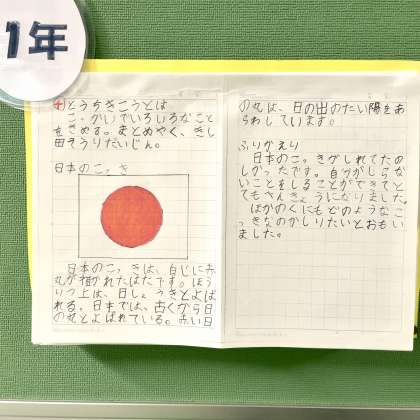 1年
とうちきこうとは
こっかいでいろいろなこと
をきめる。まとめやく、きし
田そうりだいじん。
日本のこっき
日本のこっきは、白じに赤
丸が描かれたはたです。ほう
りつ上は、日しょうきとよば
れる。日本では、古くから日
の丸とよばれている。赤い日
の丸は、日の出のたい陽をあ
らわしています。
ふりかえり
日本のこっきがしれてたの
しかったです。自分がしらな
いことをしることができてと
てもさんきょうになりました。
ほかのくにもどのようなこ
っきなのかしりたいとおもい
ました。